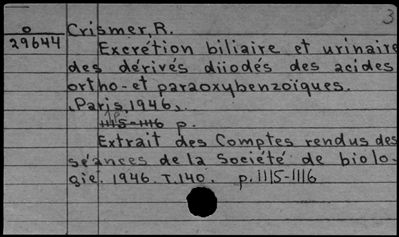 3
o
29644
Crismer, R.
Excrétion biliaire et urinaire
des dérivés diiodés des acides
ortho- et paraoxybenzoïques.
Paris, 1946.
1115-1116 p.
Extrait des Comptes rendus des
séances de la Société de biolo-
gie. 1946. T.140. p.1115-1116